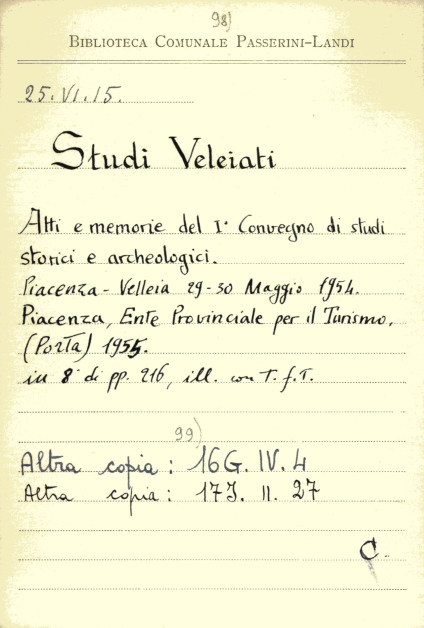 98)
BIBLIOTECA COMUNALE PASSERINI-LANDI
25.VI.15.
Studi Veleiati
Atti e memorie del I° Convegno di studi
storici e archeologici.
Piacenza - Velleia 29-30 Maggio 1954.
Piacenza, Ente Provinciale per il Turismo.
(Porta) 1955.
in 8° di pp. 216, ill. con T. f. T.
99)
Altra copia: 16G. IV. 4
Altra copia: 17J. II. 27
C.